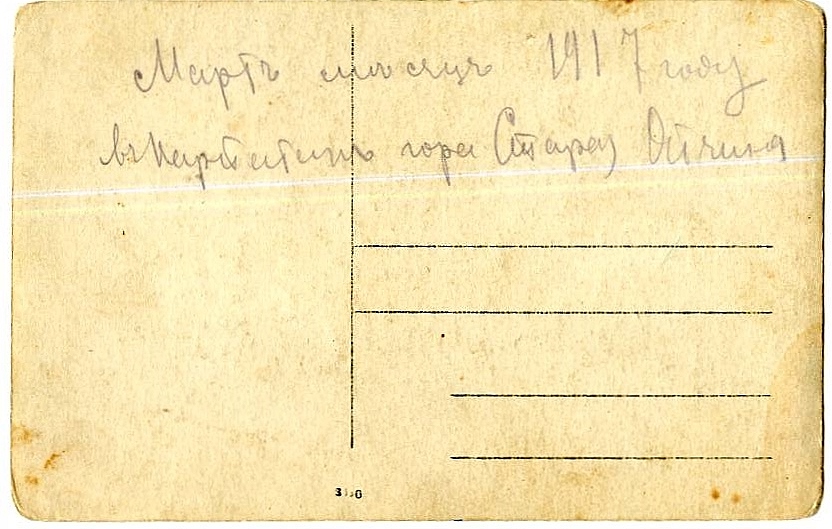 Мартъ мѣсяцъ 1917 году
въ Карпатахъ гора Старая Отчина
3